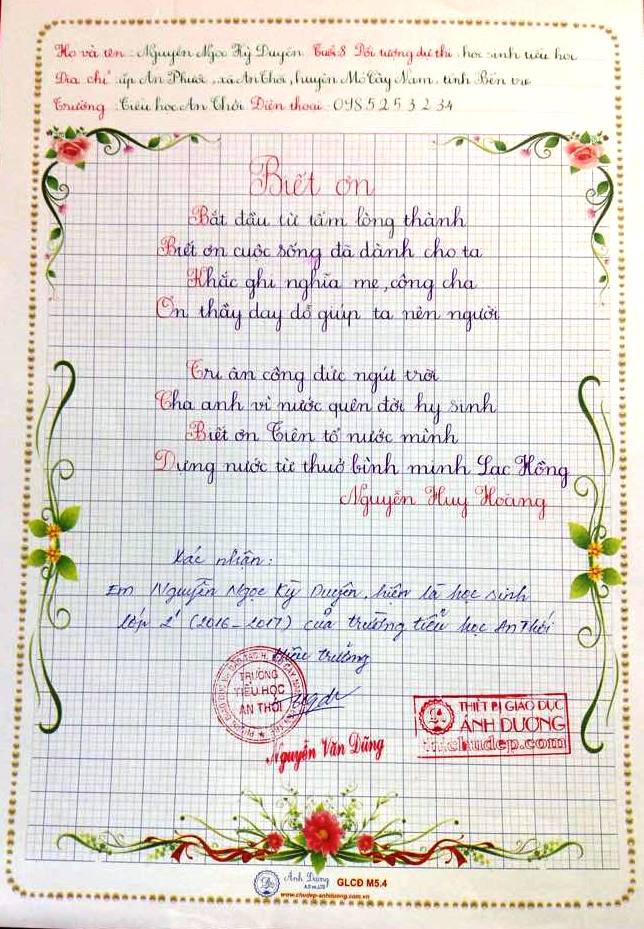 Họ và tên: Nguyễn Ngọc Kỳ Duyên Tuổi: 8 Đối tượng dự thi: học sinh tiểu học
Địa chỉ: ấp An Phước, xã An Thới, huyện Mỏ Cày Nam, tỉnh Bến Tre
Trường: Tiểu học An Thới Điện thoại: 0985253234
Biết ơn
Bắt đầu từ tấm lòng thành
Biết ơn cuộc sống đã dành cho ta
Khắc ghi nghĩa mẹ, công cha
Ơn thầy dạy dỗ giúp ta nên người
Tri ân công đức ngút trời
Cha anh vì nước quên đời hy sinh
Biết ơn Tiên tổ nước mình
Dựng nước từ thuở bình minh Lạc Hồng
Nguyễn Huy Hoàng
Xác nhận:
Em Nguyễn Ngọc Kỳ Duyên, hiện là học sinh
lớp 2¹ (2016-2017) của trường tiểu học An Thới
Hiệu trưởng
TRƯỜNG
TIỂU HỌC
AN THỚI
Nguyễn Văn Dũng
THIẾT BỊ GIÁO DỤC
ÁNH DƯƠNG
Ánh Dương
GLCĐ M5.4
www.chudep-anhduong.com.vn